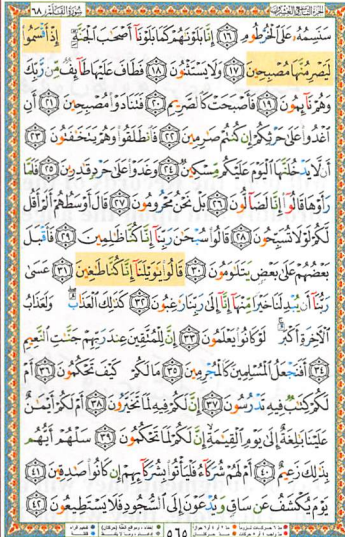 سُورَةُ القَلَمِ ٦٨
سَنَسِمُهُ عَلَى الْخُرْطُومِ ١٦ إِنَّا بَلَوْنَاهُمْ كَمَا بَلَوْنَا أَصْحَابَ الْجَنَّةِ إِذْ أَقْسَمُوا
لَيَصْرِمُنَّهَا مُصْبِحِينَ ١٧ وَلَا يَسْتَثْنُونَ ١٨ فَطَافَ عَلَيْهَا طَائِفٌ مِّن رَّبِّكَ
وَهُمْ نَائِمُونَ ١٩ فَأَصْبَحَتْ كَالصَّرِيمِ ٢٠ فَتَنَادَوْا مُصْبِحِينَ ٢١ أَنِ
اغْدُوا عَلَى حَرْثِكُمْ إِن كُنتُمْ صَارِمِينَ ٢٢ فَانطَلَقُوا وَهُمْ يَتَخَافَتُونَ ٢٣
أَن لَّا يَدْخُلَنَّهَا الْيَوْمَ عَلَيْكُم مِّسْكِينٌ ٢٤ وَغَدَوْا عَلَى حَرْدٍ قَادِرِينَ ٢٥ فَلَمَّا
رَأَوْهَا قَالُوا إِنَّا لَضَالُّونَ ٢٦ بَلْ نَحْنُ مَحْرُومُونَ ٢٧ قَالَ أَوْسَطُهُمْ أَلَمْ أَقُل
لَّكُمْ لَوْلَا تُسَبِّحُونَ ٢٨ قَالُوا سُبْحَانَ رَبِّنَا إِنَّا كُنَّا ظَالِمِينَ ٢٩ فَأَقْبَلَ
بَعْضُهُمْ عَلَى بَعْضٍ يَتَلَاوَمُونَ ٣٠ قَالُوا يَا وَيْلَنَا إِنَّا كُنَّا طَاغِينَ ٣١ عَسَى
رَبُّنَا أَن يُبْدِلَنَا خَيْرًا مِّنْهَا إِنَّا إِلَى رَبِّنَا رَاغِبُونَ ٣٢ كَذَلِكَ الْعَذَابُ وَلَعَذَابُ
الْآخِرَةِ أَكْبَرُ لَوْ كَانُوا يَعْلَمُونَ ٣٣ إِنَّ لِلْمُتَّقِينَ عِندَ رَبِّهِمْ جَنَّاتِ النَّعِيمِ
٣٤ أَفَنَجْعَلُ الْمُسْلِمِينَ كَالْمُجْرِمِينَ ٣٥ مَا لَكُمْ كَيْفَ تَحْكُمُونَ ٣٦ أَمْ
لَكُمْ كِتَابٌ فِيهِ تَدْرُسُونَ ٣٧ إِنَّ لَكُمْ فِيهِ لَمَا تَخَيَّرُونَ ٣٨ أَمْ لَكُمْ أَيْمَانٌ
عَلَيْنَا بَالِغَةٌ إِلَى يَوْمِ الْقِيَامَةِ إِنَّ لَكُمْ لَمَا تَحْكُمُونَ ٣٩ سَلْهُمْ أَيُّهُم
بِذَلِكَ زَعِيمٌ ٤٠ أَمْ لَهُمْ شُرَكَاءُ فَلْيَأْتُوا بِشُرَكَائِهِمْ إِن كَانُوا صَادِقِينَ ٤١
يَوْمَ يُكْشَفُ عَن سَاقٍ وَيُدْعَوْنَ إِلَى السُّجُودِ فَلَا يَسْتَطِيعُونَ ٤٢
٥٦٥